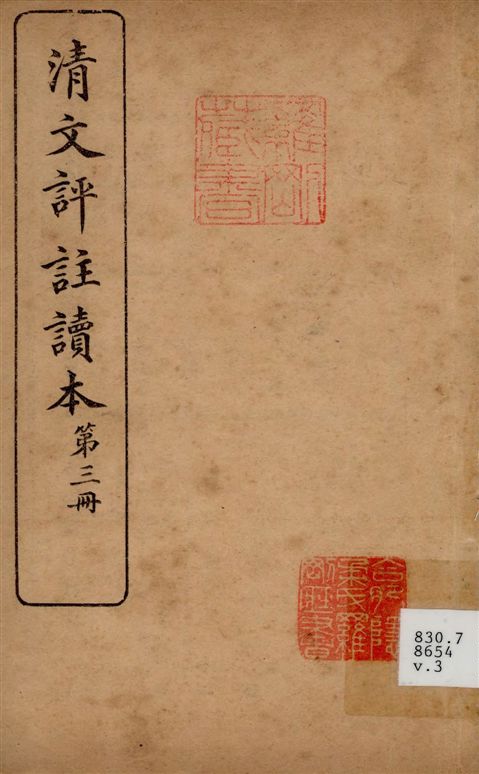 清文評註讀本 第三冊
羅剛
藏書
830.7
8654
v.3